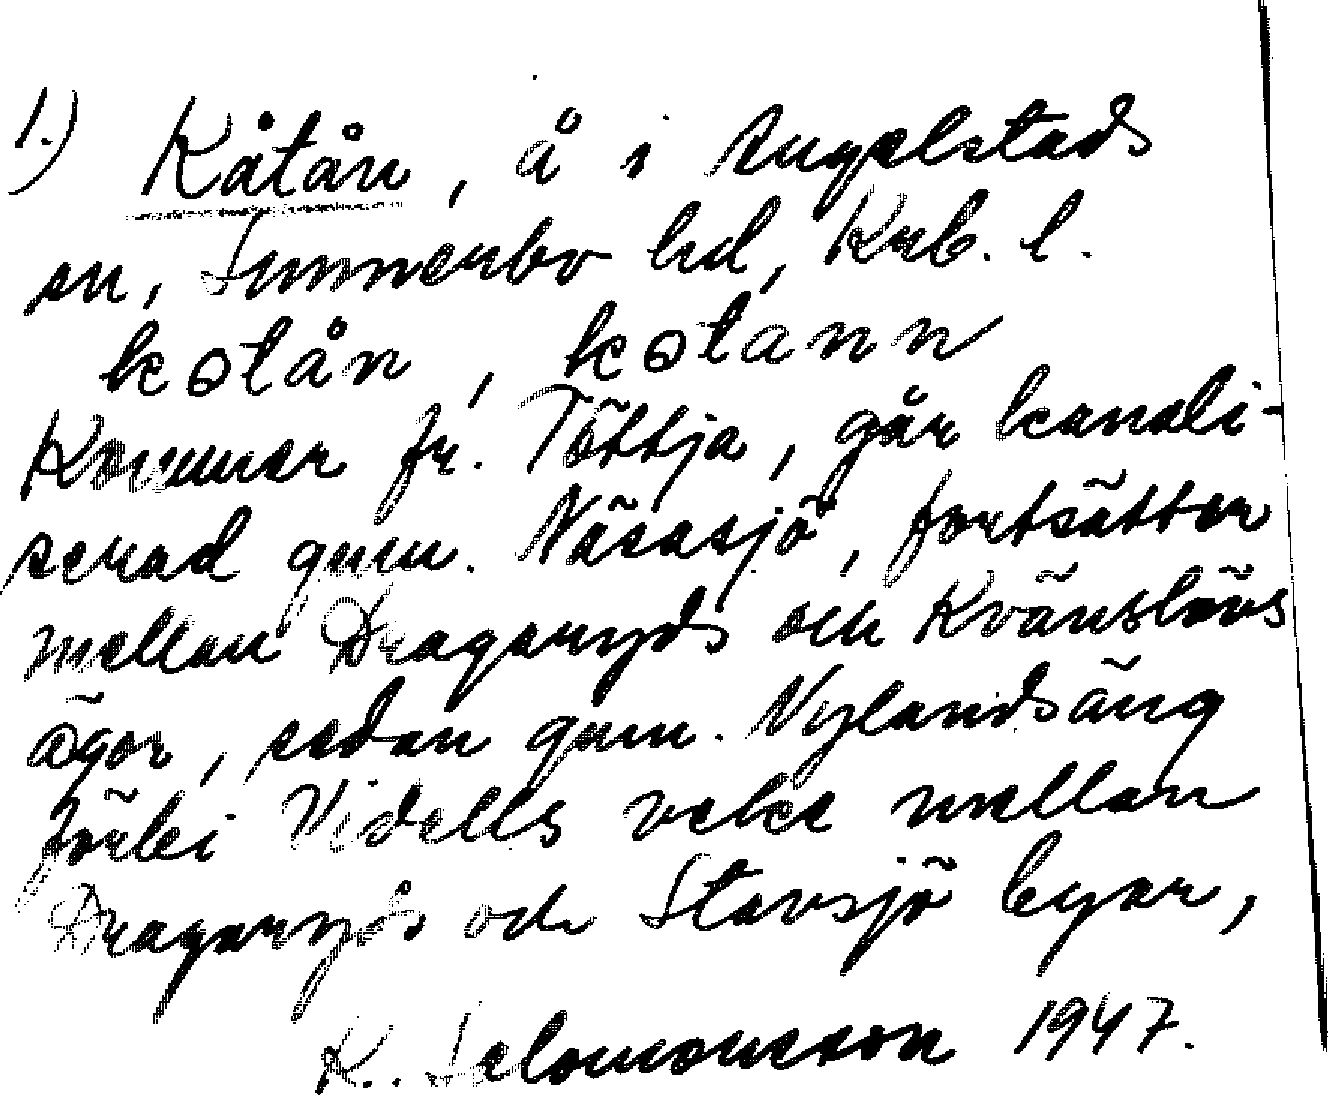 1.) Kåtån, å i Angelstads
sn, Sunnerbo hd, Krb. l.
kɷtån, kɷtann
Kommer fr. Töttja, går kanali-
serad gnm. Näsasjö, fortsätter
mellan Dragaryds och Kvänslövs
ägor, sedan gnm. Nylandsäng
förbi Vidells veke mellan
Dragaryds och Stavsjö byar,
K. Salomonsson 1947.